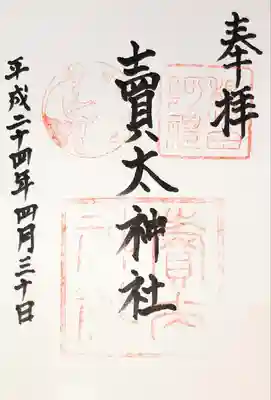 奉拝
賣太神社
平成二十四年四月三十日